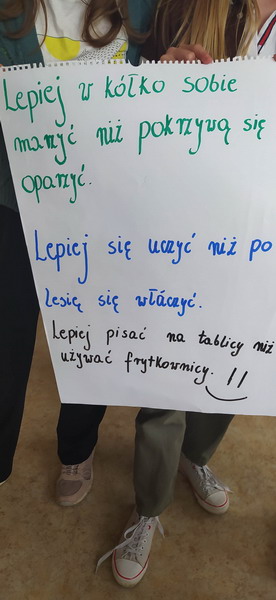 Lepiej w kółko sobie
marzyć niż pokrzywą się
oparzyć.
Lepiej się uczyć niż po
lesię się włáczyć.
Lepiej pisać na tablicy niż
używać frytkownicy.